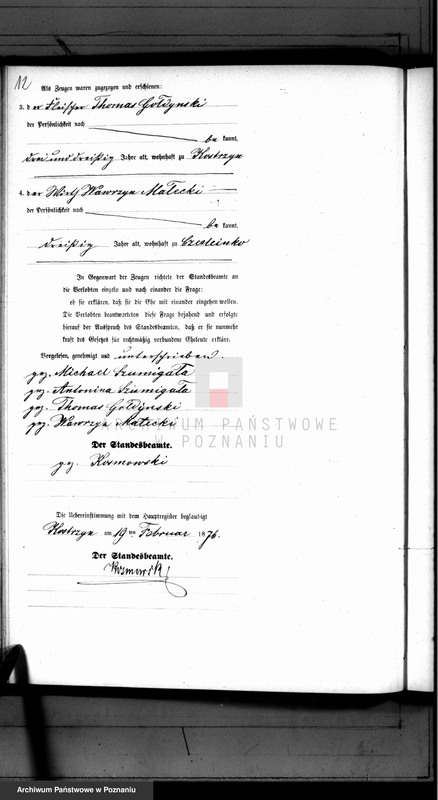 12
Als Zeugen waren zugezogen und erschienen:
3. d er Fleischer Thomas Gołdynski
der Persönlichkeit nach
be kannt,
drei und dreißig Jahre alt, wohnhaft zu Kostrzyn
4. d er Wirth Wawrzyn Małecki
der Persönlichkeit nach
be kannt,
dreißig Jahre alt, wohnhaft zu
In Gegenwart der Zeugen richtete der Standesbeamte an
die Verlobten einzeln und nach einander die Frage:
ob sie erklären, daß sie die Ehe mit einander eingehen wollen.
Die Verlobten beantworteten diese Frage bejahend und erfolgte
hierauf der Ausspruch des Standesbeamten, daß er sie nunmehr
kraft des Gesetzes für rechtmäßig verbundene Eheleute erkläre.
Vorgelesen, genehmigt und unterschrieben.
gez. Michael Szumigała
gez. Antonina Szumigała
gez. Thomas Gołdynski
gez. Wawrzyn Małecki
ARCHIWUM PAŃSTWOWE
W POZNANIU
Der Standesbeamte.
gez. Kosmowski
Die Uebereinstimmung mit dem Hauptregister beglaubigt
Kostrzyn am 19 ten Februar 1876.
Der Standesbeamte.
Kosmowski
Archiwum Państwowe w Poznaniu